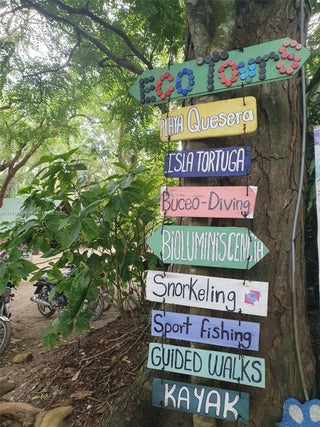 Eco Tours
PLAYA QUESERA
ISLA TORTUGA
Buceo-Diving
BioLUMINISCENCIA
Snorkeling
Sport fishing
GUIDED WALKS
KAYAK